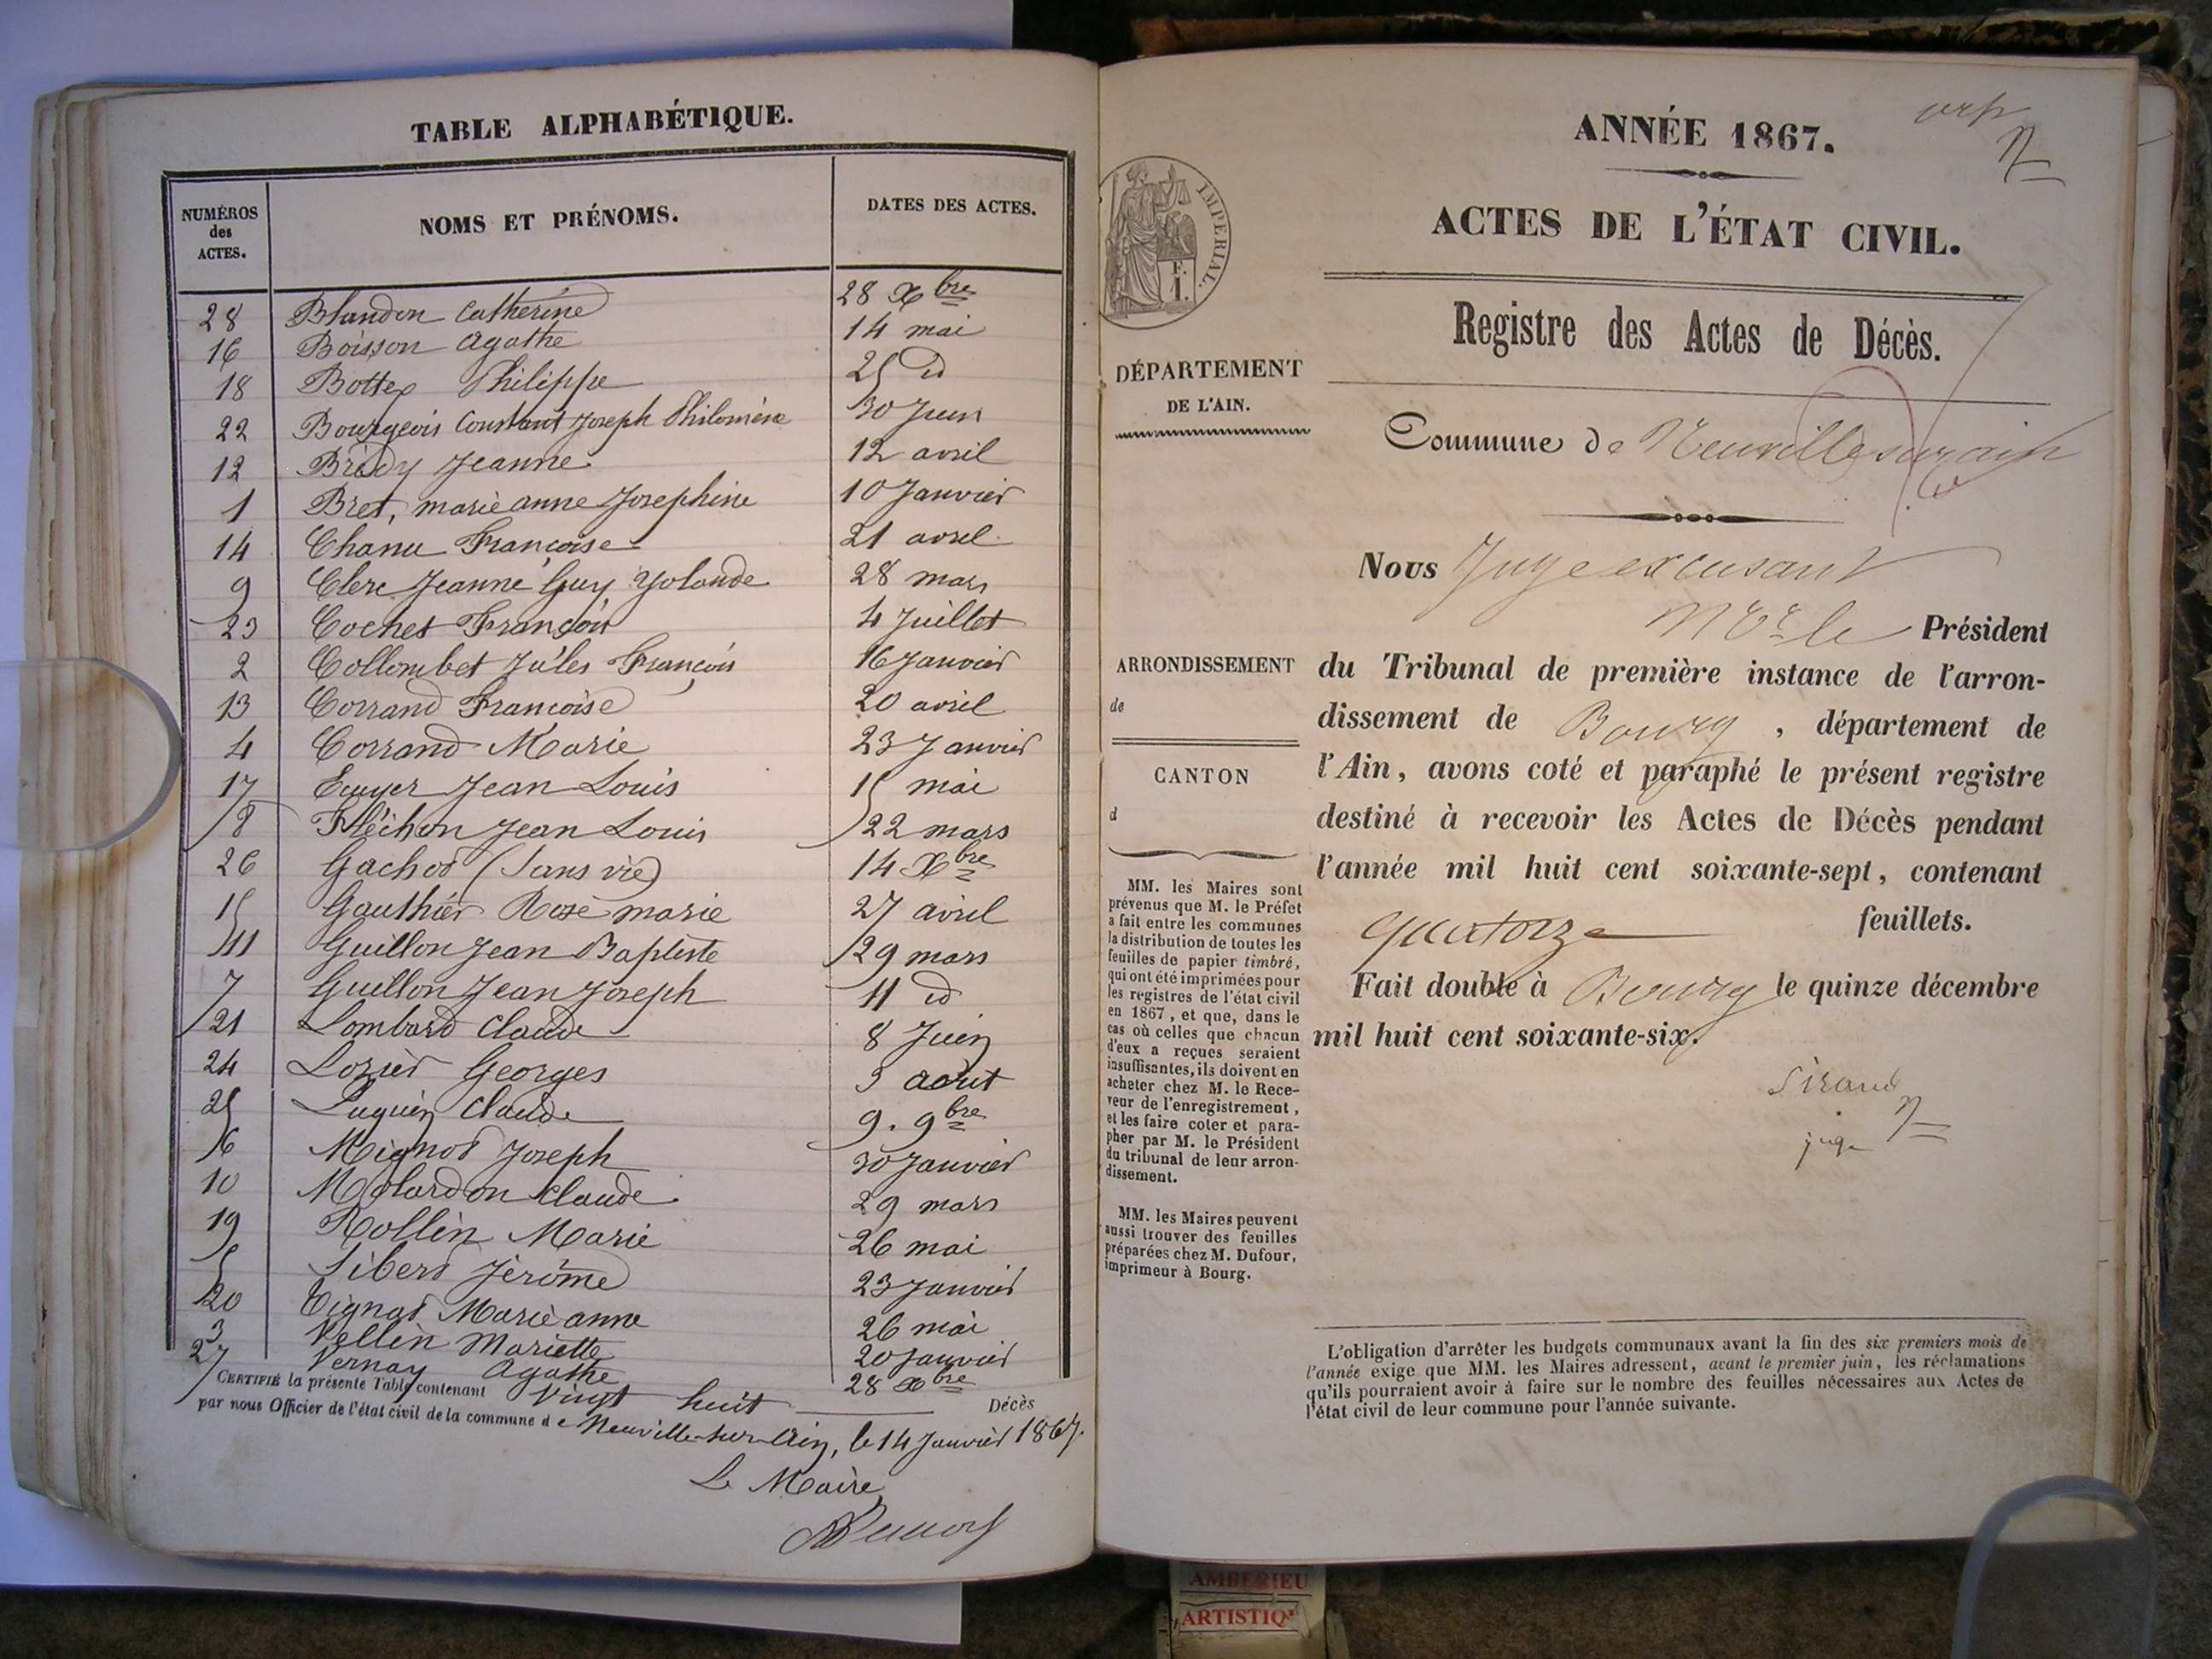 TABLE ALPHABÉTIQUE.
NUMÉROS des ACTES. NOMS ET PRÉNOMS. DATES DES ACTES.
28 Blandon Catherine 28 Xbre
16 Boisson Agathe 14 mai
18 Bottex Philippe 25 id
22 Bourgeois Constant Joseph Philomène 30 Juin
12 Brédy Jeanne 12 avril
1 Bret, marie anne Josephine 10 Janvier
14 Chanu Françoise 21 avril
9 Clerc Jeanne Guy Yolande 28 mars
23 Cochet François 4 Juillet
2 Collombet Jules François 16 Janvier
13 Corrand Françoise 20 avril
4 Corrand Marie 23 Janvier
17 Ecuyer Jean Louis 15 mai
8 Fléchon Jean Louis 22 mars
26 Gachod (Sans vie) 14 Xbre
15 Gauthier Rose marie 27 avril
11 Guillon Jean Baptiste 29 mars
7 Guillon Jean Joseph 11 id
21 Lombard Claude 8 Juin
24 Lozier Georges 3 août
25 Luguin Claude 9. 9bre
6 Mignot Joseph 30 Janvier
10 Molardon Claude 29 mars
19 Rollin Marie 26 mai
5 Siberd Jérôme 23 Janvier
20 Tignat Marie anne 26 mai
3 Vellin Mariette 20 Janvier
27 Vernay Agathe 28 Xbre
CERTIFIÉ la présente Table contenant Vingt huit Décès
par nous Officier de l'état civil de la commune d e Neuville-sur-Ain, le 14 Janvier 1867.
Le Maire
ANNÉE 1867.
ACTES DE L'ÉTAT CIVIL.
IMPERIAL.
F.
1.
Registre des Actes de Décès.
DÉPARTEMENT
DE L'AIN.
Commune de Neuville sur ain
Nous Juge excusant
Mr le Président
ARRONDISSEMENT
de
du Tribunal de première instance de l'arron-
dissement de Bourg , département de
CANTON
d
l'Ain, avons coté et paraphé le présent registre
destiné à recevoir les Actes de Décès pendant
l'année mil huit cent soixante-sept, contenant
quatorze feuillets.
Fait double à Bourg le quinze décembre
mil huit cent soixante-six.
Sirand
juge
MM. les Maires sont
prévenus que M. le Préfet
a fait entre les communes
la distribution de toutes les
feuilles de papier timbré,
qui ont été imprimées pour
les registres de l'état civil
en 1867, et que, dans le
cas où celles que chacun
d'eux a reçues seraient
insuffisantes, ils doivent en
acheter chez M. le Rece-
veur de l'enregistrement,
et les faire coter et para-
pher par M. le Président
du tribunal de leur arron-
dissement.
MM. les Maires peuvent
aussi trouver des feuilles
préparées chez M. Dufour,
imprimeur à Bourg.
L'obligation d'arrêter les budgets communaux avant la fin des six premiers mois de
l'année exige que MM. les Maires adressent, avant le premier juin, les réclamations
qu'ils pourraient avoir à faire sur le nombre des feuilles nécessaires aux Actes de
l'état civil de leur commune pour l'année suivante.
AMBERIEU
ARTISTIQ